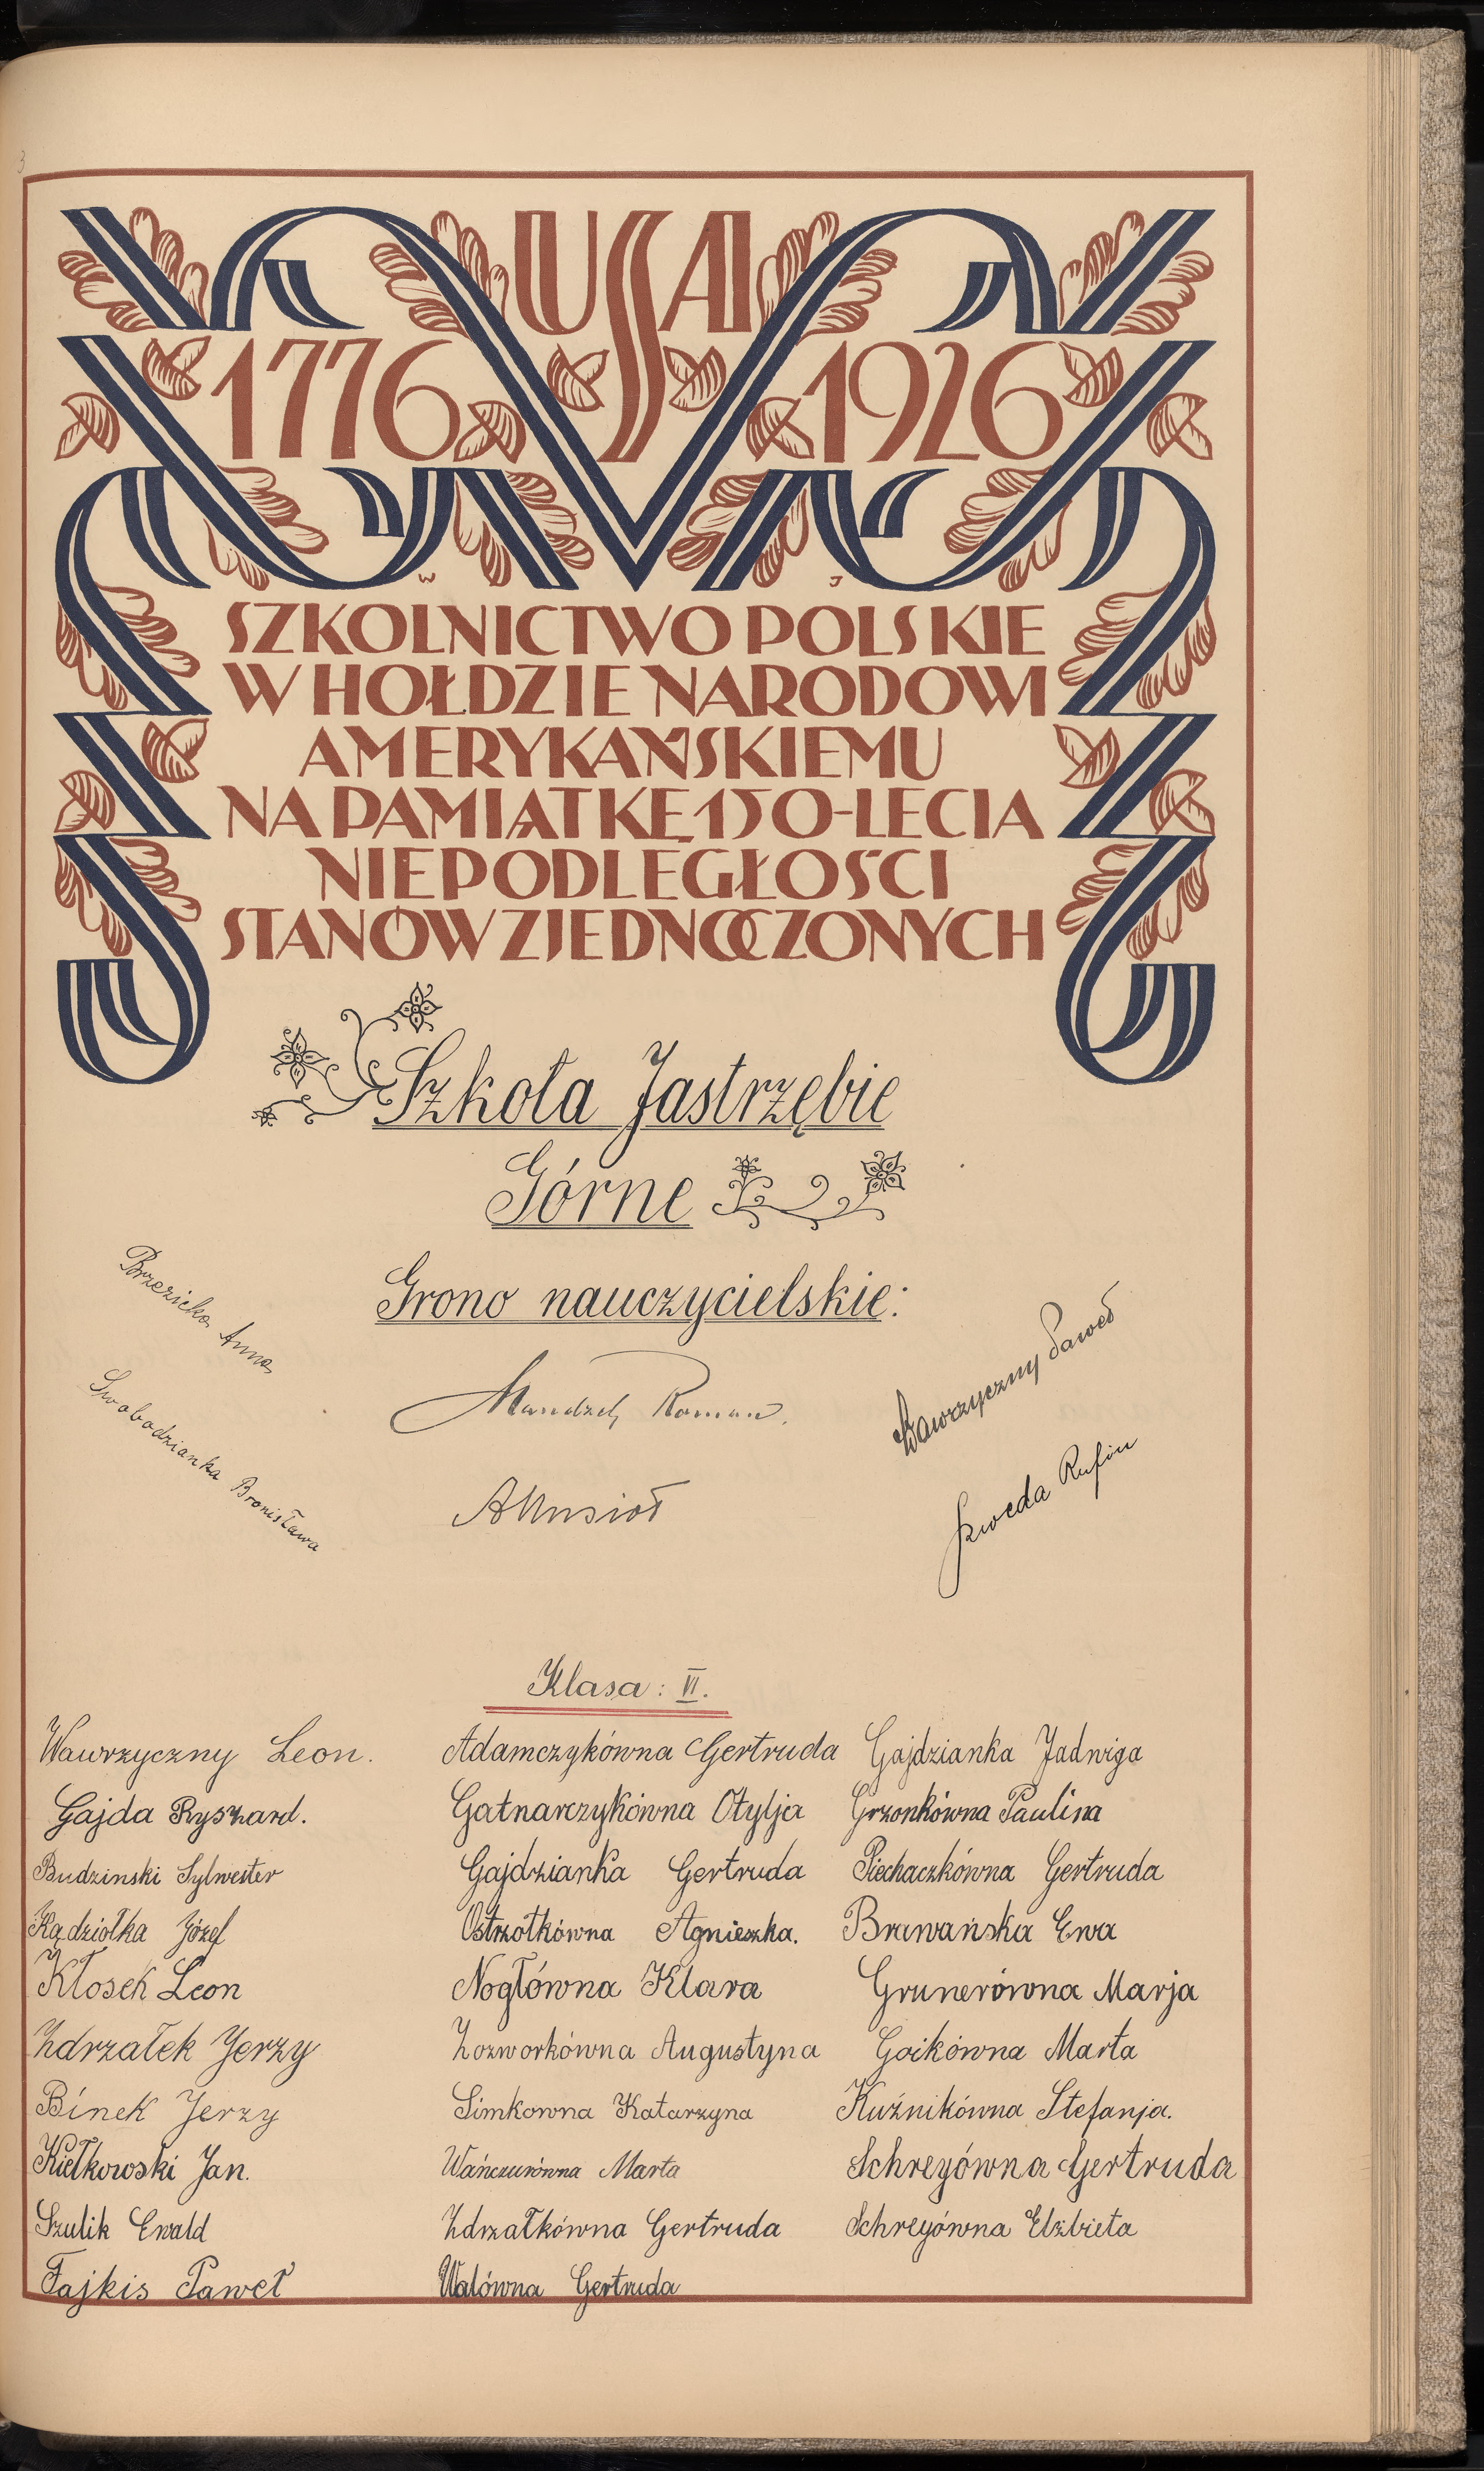 3
USA
1776 1926
W J
SZKOLNICTWO POLSKIE
W HOŁDZIE NARODOWI
AMERYKAŃSKIEMU
NA PAMIĄTKĘ 150-LECIA
NIEPODLEGŁOŚCI
STANÓW ZJEDNOCZONYCH
Szkoła Jastrzębie
Górne
Grono nauczycielskie:
Brzezicka Anna
Swobodzianka Bronisława
Roman.
AMusioł
Wawrzyczny Paweł
Szweda Rufin
Klasa: VI.
Wawrzyczny Leon. Adamczykówna Gertruda Gajdzianka Jadwiga
Gajda Ryszard. Gatnarczykówna Otylja Grzonkówna Paulina
Budzinski Sylwester Gajdzianka Gertruda Piechaczkówna Gertruda
Kądziołka Józef Ostrzołkówna Agnieszka. Brawańska Ewa
Kłosek Leon Nogłówna Klara Grunerówna Marja
Zdrzałek Jerzy Zozworkówna Augustyna Goikówna Marta
Binek Jerzy Simkowna Katarzyna Kuźnikówna Stefanja.
Kiełkowski Jan. Wańczurówna Marta Schreyówna Gertruda
Szulik Ewald Zdrzałkówna Gertruda Schreyówna Elżbieta
Fajkis Paweł Walówna Gertruda